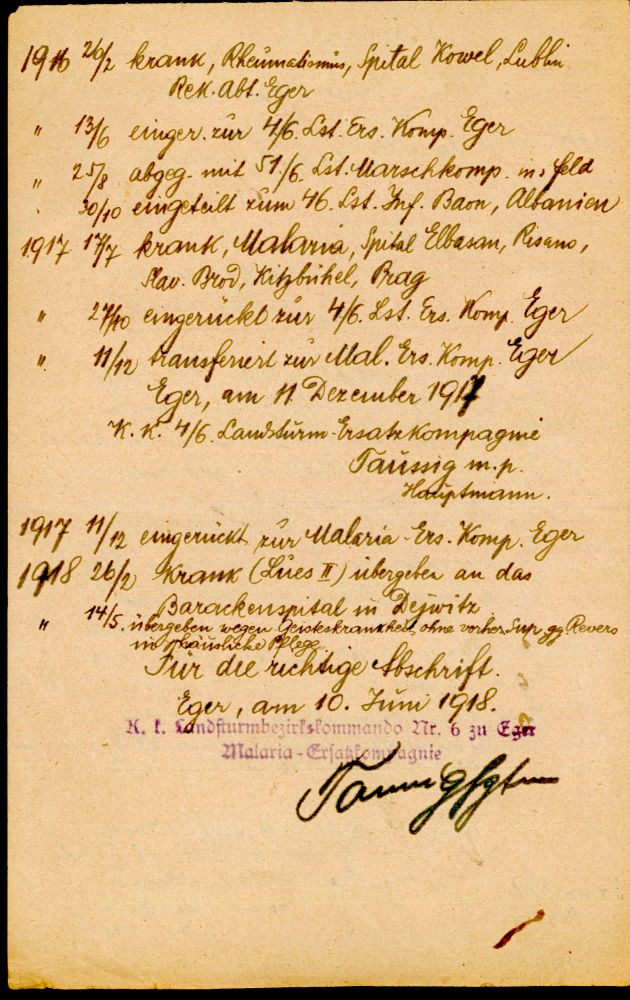 1916 26/2 krank, Rheumatismus, Spital Kowel, Lublin
Rek. Abt. Eger
" 13/6 einger. zur 4/6. Lst. Ers. Komp. Eger
" 25/8 abgeg. mit 51./6. Lst. Marschkomp. ins Feld
" 30/10 eingeteilt zum 46. Lst. Inf. Baon, Albanien
1917 17/7 krank, Malaria, Spital Elbasan, Risano,
Slav. Brod, Kitzbühel, Prag
" 27/10 eingerückt zur 4/6. Lst. Ers. Komp. Eger
" 11/12 transferiert zur Mal. Ers. Komp. Eger
Eger, am 11. Dezember 1917
K. K. 4/6. Landsturm-Ersatzkompagnie
Taussig m.p.
Hauptmann.
1917 11/12 eingerückt zur Malaria-Ers. Komp. Eger
1918 26/2 krank (Lues II) übergeben an das
Barackenspital in Dejwitz
" 14/5. übergeben wegen Geisteskrankheit, ohne vorher. Sup. gg. Revers
in häusliche Pflege.
Für die richtige Abschrift.
Eger, am 10. Juni 1918.
K. k. Landsturmbezirkskommando Nr. 6 zu Eger
Malaria-Ersatzkompagnie